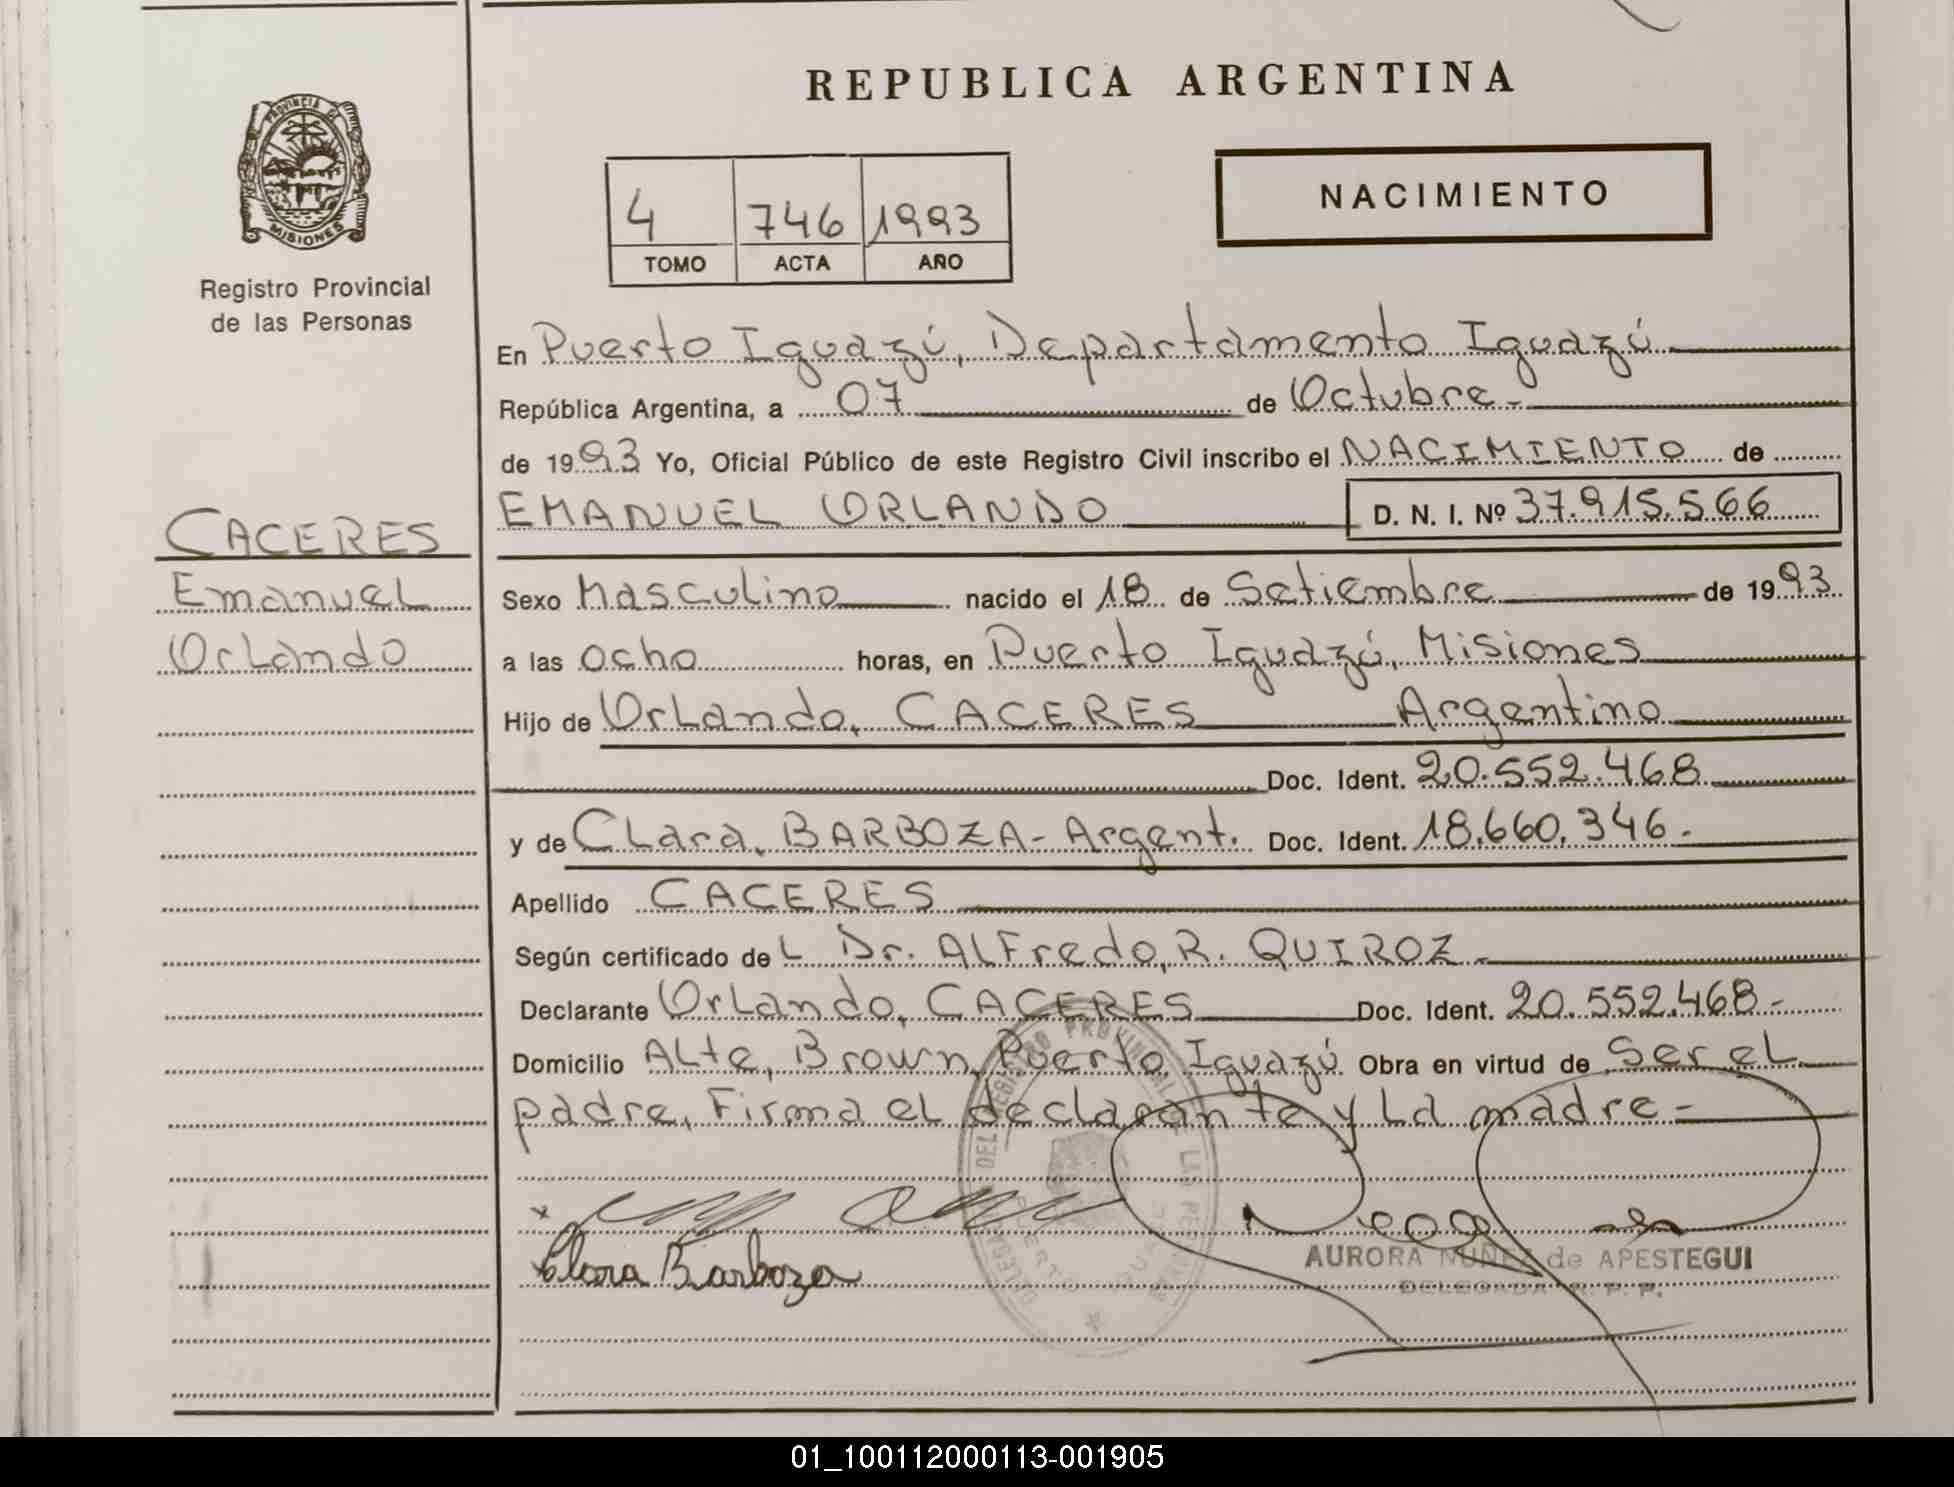 REPUBLICA ARGENTINA
PROVINCIA DE
MISIONES
Registro Provincial
de las Personas
NACIMIENTO
4 746 1993
TOMO ACTA AÑO
En Puerto Iguazú, Departamento Iguazú
República Argentina, a 07 de Octubre.-
de 1993 Yo, Oficial Público de este Registro Civil inscribo el NACIMIENTO de
CACERES
Emanuel
Orlando
EMANUEL ORLANDO D. N. I. Nº 37.915.566
Sexo Masculino nacido el 18 de Setiembre de 1993
a las ocho horas, en Puerto Iguazú, Misiones
Hijo de Orlando, CACERES Argentino
Doc. Ident. 20.552.468
y de Clara, BARBOZA - Argent. Doc. Ident. 18.660.346.
Apellido CACERES
Según certificado de L Dr. ALFredo, R. QUIROZ.
Declarante Orlando, CACERES Doc. Ident. 20.552.468.-
Domicilio ALte, Brown, Puerto Iguazú Obra en virtud de Ser el
padre, Firma el declarante y La madre.-
x
Clara Barboza
DEL REGISTRO PROVINCIAL DE LAS PERSONAS
PUERTO IGUAZU
AURORA NUÑEZ de APESTEGUI
DELEGADA R. P. P.
01_100112000113-001905